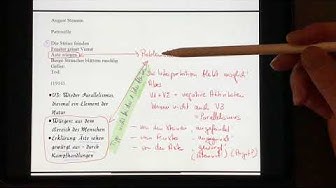 August Stramm
Patrouille
Die Steine feinden
Fenster grinst Verrat
Äste würgen
Berge Sträucher blättern raschlig
Gellen
Tod.
(1915)
V3: Wieder Parallelismus,
diesmal ein Element der
Natur
Würgen: aus dem
Bereich des Menschen
Erklärung: Äste sehen
gewürgt aus - durch
Kampfhandlungen
→ Problem
Interpretation bleibt möglich!
Aber
V1 + V2 = negative Attribution
Warum nicht auch V3
= Parallelismus
- von den Steinen angefeindet
- von Fenster angegrinst
- von den Ästen gewürgt